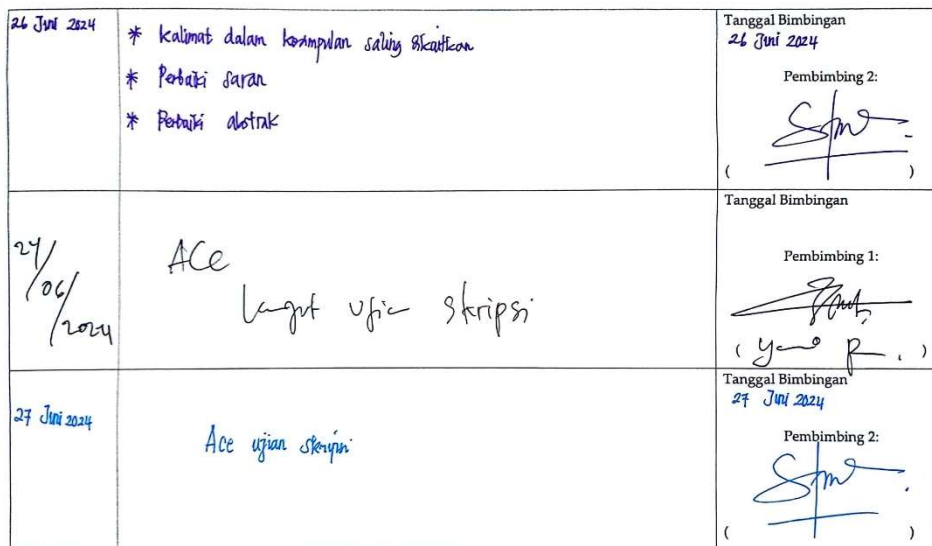 26 Juni 2024
* Kalimat dalam kesimpulan saling dikaitkan
* Perbaiki saran
* Perbaiki abstrak
Tanggal Bimbingan
26 Juni 2024
Pembimbing 2:
( )
24/06/2024
ACC
Lanjut ujian skripsi
Tanggal Bimbingan
Pembimbing 1:
( )
27 Juni 2024
Acc ujian skripsi
Tanggal Bimbingan
27 Juni 2024
Pembimbing 2:
( )